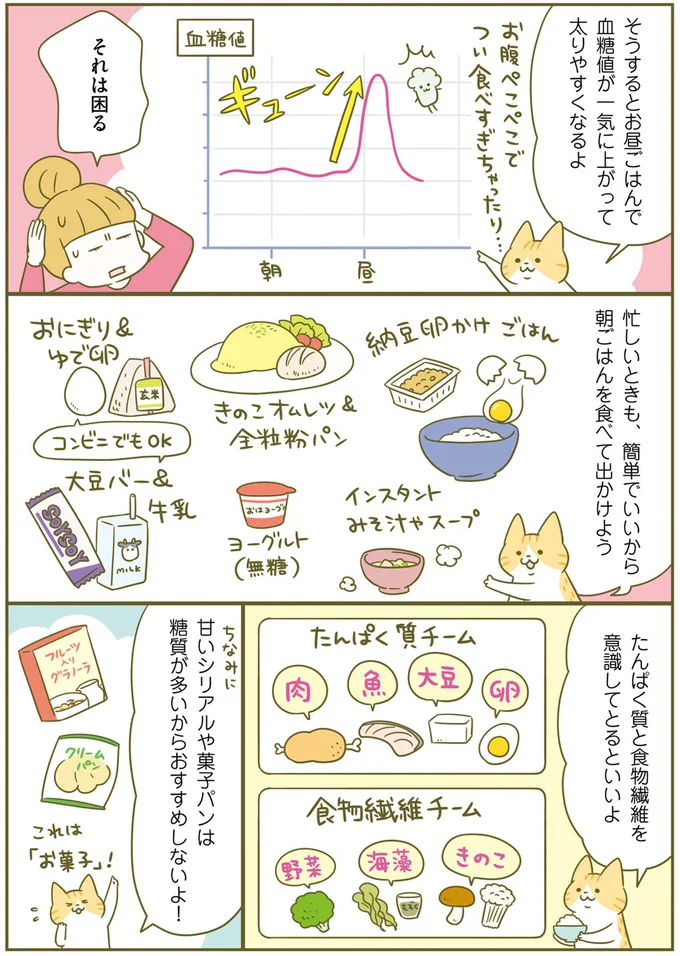 そうするとお昼ごはんで
血糖値が一気に上がって
太りやすくなるよ
お腹ぺこぺこで
つい食べすぎちゃったり…
血糖値
ギューン
朝
昼
それは困る
忙しいときも、簡単でいいから
朝ごはんを食べて出かけよう
納豆卵かけごはん
きのこオムレツ&
全粒粉パン
おにぎり&
ゆで卵
玄米
コンビニでもOK
大豆バー&
牛乳
SOYSOY
MILK
おはヨーグ
ヨーグルト
(無糖)
インスタント
みそ汁やスープ
たんぱく質と食物繊維を
意識してとるといいよ
たんぱく質チーム
肉
魚
大豆
卵
食物繊維チーム
野菜
海藻
きのこ
もずく
ちなみに
甘いシリアルや菓子パンは
糖質が多いからおすすめしないよ!
フルーツ
入り
グラノーラ
クリーム
パン
これは
「お菓子」!